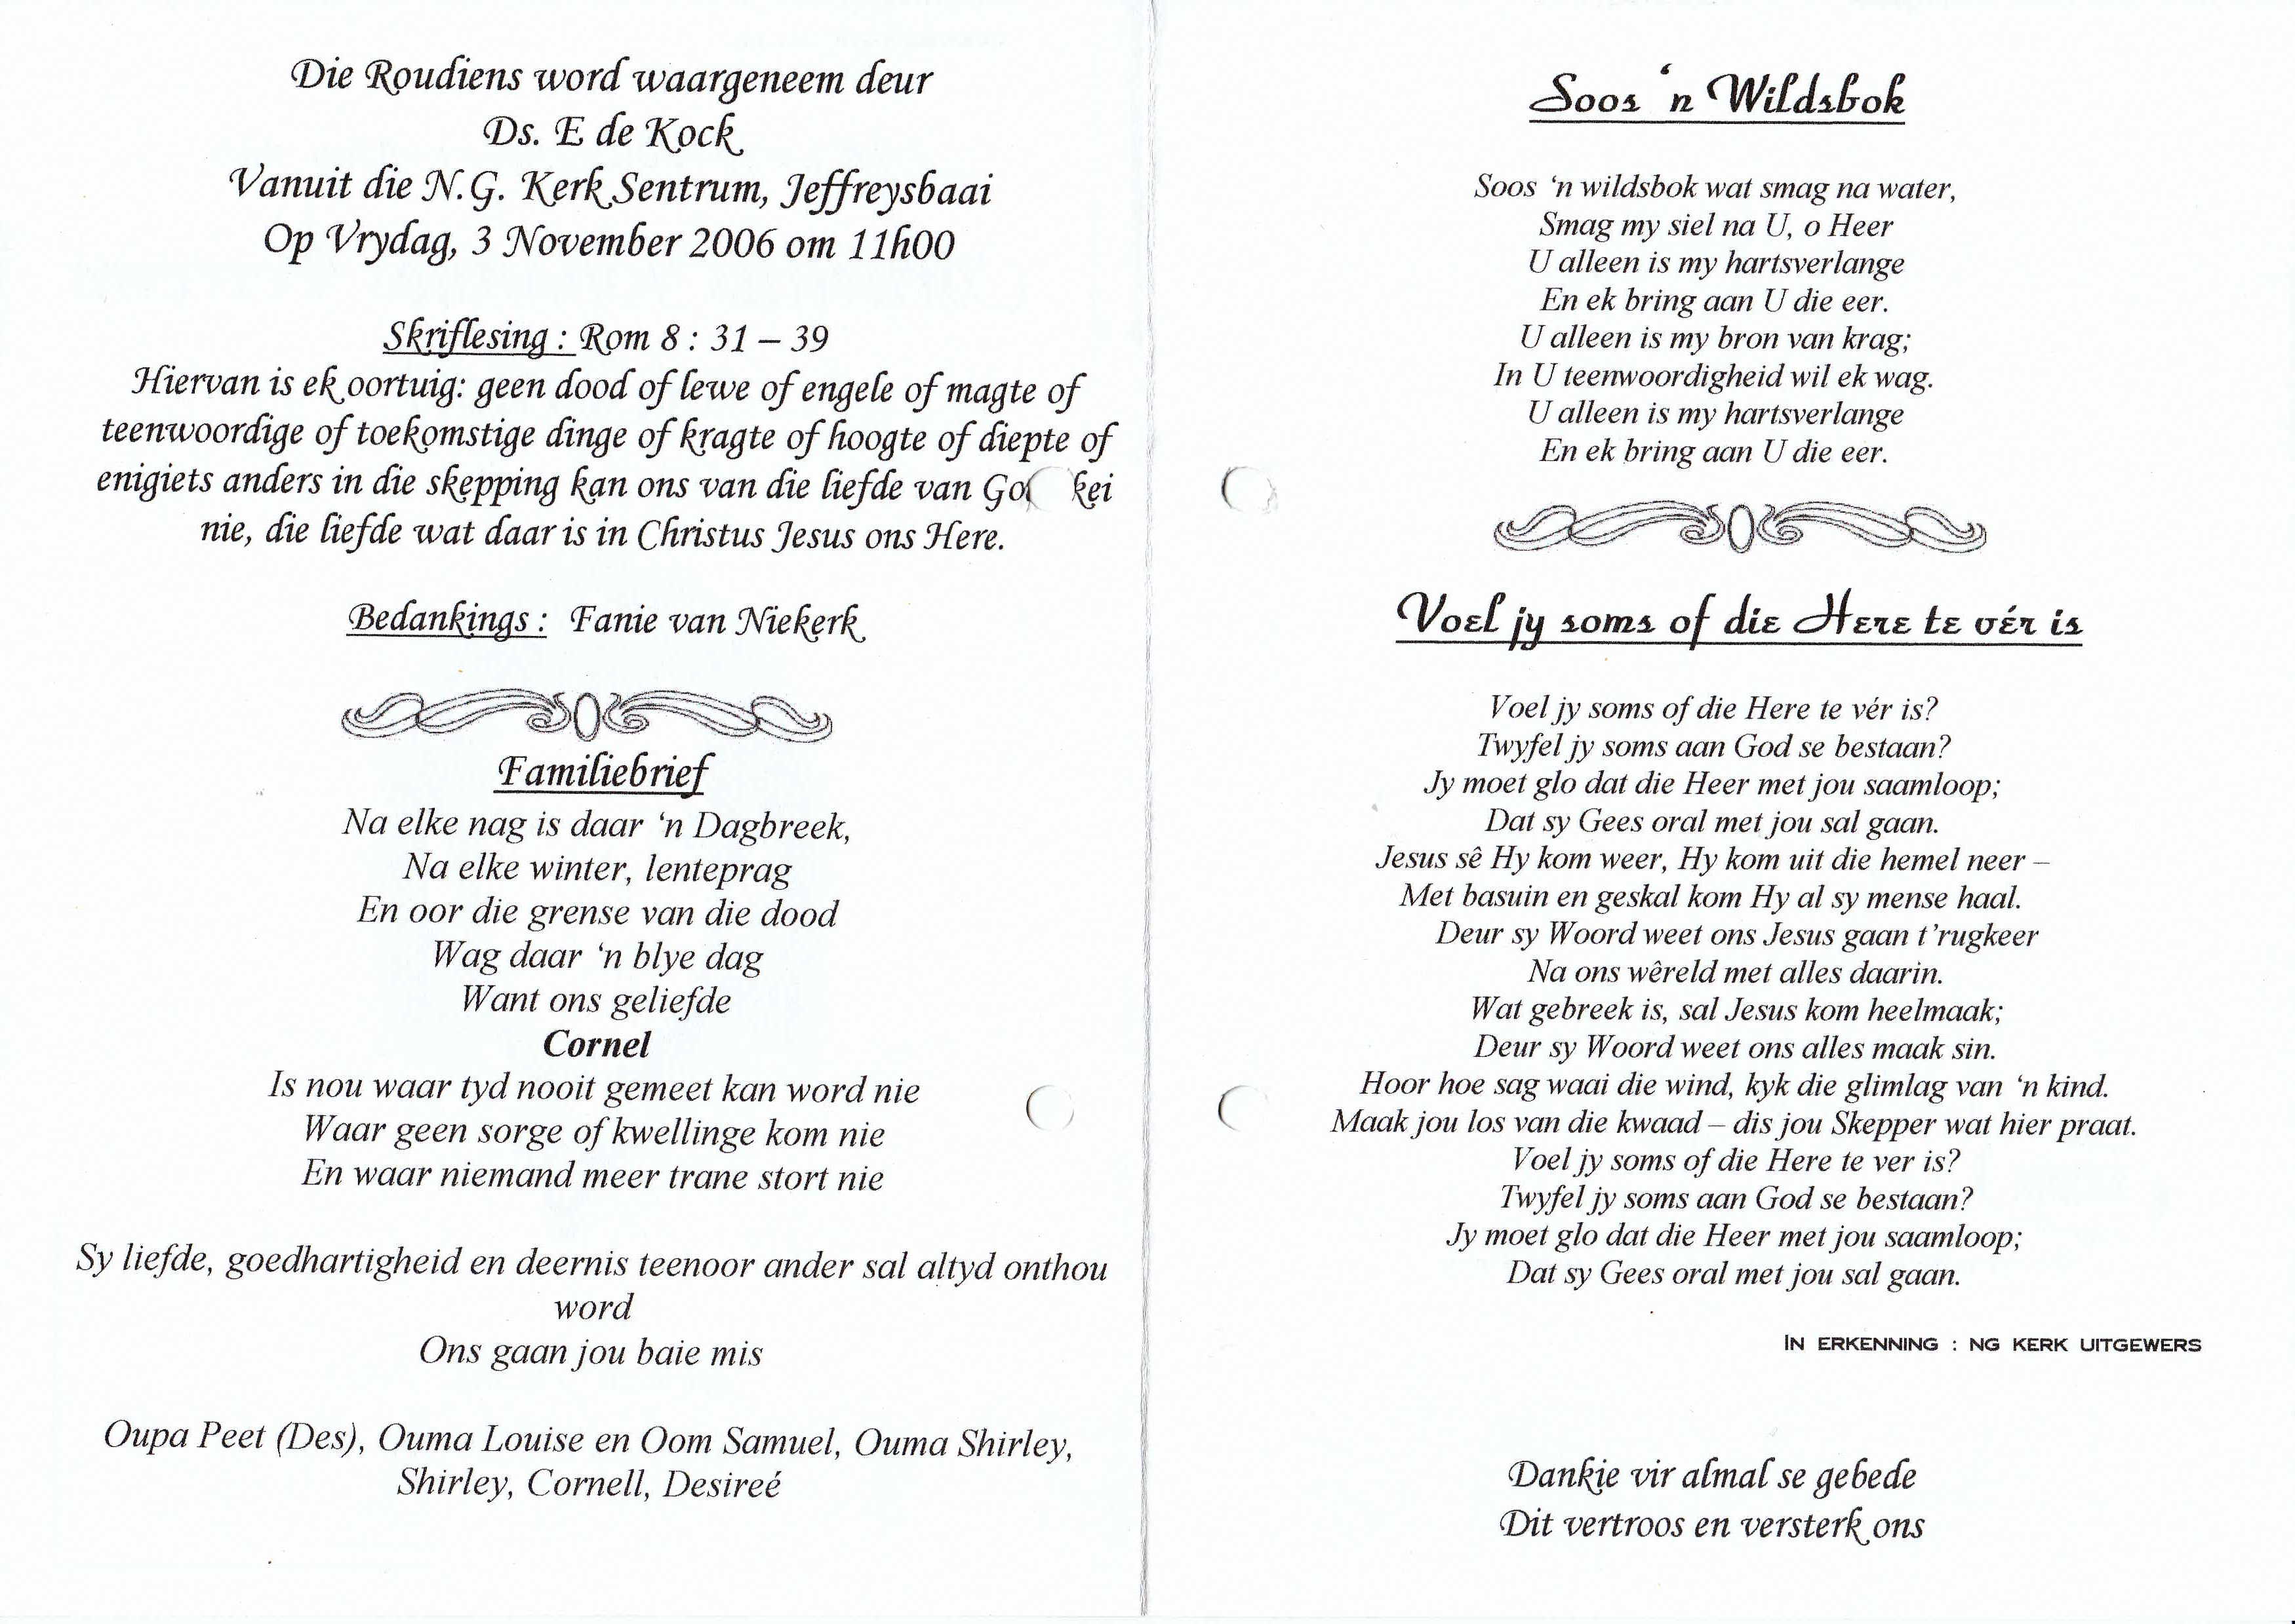 Die Roudiens word waargeneem deur
Ds. E de Kock
Vanuit die N.G. Kerk Sentrum, Jeffreysbaai
Op Vrydag, 3 November 2006 om 11h00
Skriflesing : Rom 8 : 31 – 39
Hiervan is ek oortuig: geen dood of lewe of engele of magte of
teenwoordige of toekomstige dinge of kragte of hoogte of diepte of
enigiets anders in die skepping kan ons van die liefde van
nie, die liefde wat daar is in Christus Jesus ons Here.
Bedankings : Fanie van Niekerk
Familiebrief
Na elke nag is daar ‘n Dagbreek,
Na elke winter, lenteprag
En oor die grense van die dood
Wag daar ‘n blye dag
Want ons geliefde
Cornel
Is nou waar tyd nooit gemeet kan word nie
Waar geen sorge of kwellinge kom nie
En waar niemand meer trane stort nie
Sy liefde, goedhartigheid en deernis teenoor ander sal altyd onthou
word
Ons gaan jou baie mis
Oupa Peet (Des), Ouma Louise en Oom Samuel, Ouma Shirley,
Shirley, Cornell, Desireé
Soos ‘n Wildsbok
Soos ‘n wildsbok wat smag na water,
Smag my siel na U, o Heer
U alleen is my hartsverlange
En ek bring aan U die eer.
U alleen is my bron van krag;
In U teenwoordigheid wil ek wag.
U alleen is my hartsverlange
En ek bring aan U die eer.
Voel jy soms of die Here te vér is
Voel jy soms of die Here te vér is?
Twyfel jy soms aan God se bestaan?
Jy moet glo dat die Heer met jou saamloop;
Dat sy Gees oral met jou sal gaan.
Jesus sê Hy kom weer, Hy kom uit die hemel neer –
Met basuin en geskal kom Hy al sy mense haal.
Deur sy Woord weet ons Jesus gaan t’rugkeer
Na ons wêreld met alles daarin.
Wat gebreek is, sal Jesus kom heelmaak;
Deur sy Woord weet ons alles maak sin.
Hoor hoe sag waai die wind, kyk die glimlag van ‘n kind.
Maak jou los van die kwaad – dis jou Skepper wat hier praat.
Voel jy soms of die Here te ver is?
Twyfel jy soms aan God se bestaan?
Jy moet glo dat die Heer met jou saamloop;
Dat sy Gees oral met jou sal gaan.
IN ERKENNING : NG KERK UITGEWERS
Dankie vir almal se gebede
Dit vertroos en versterk ons